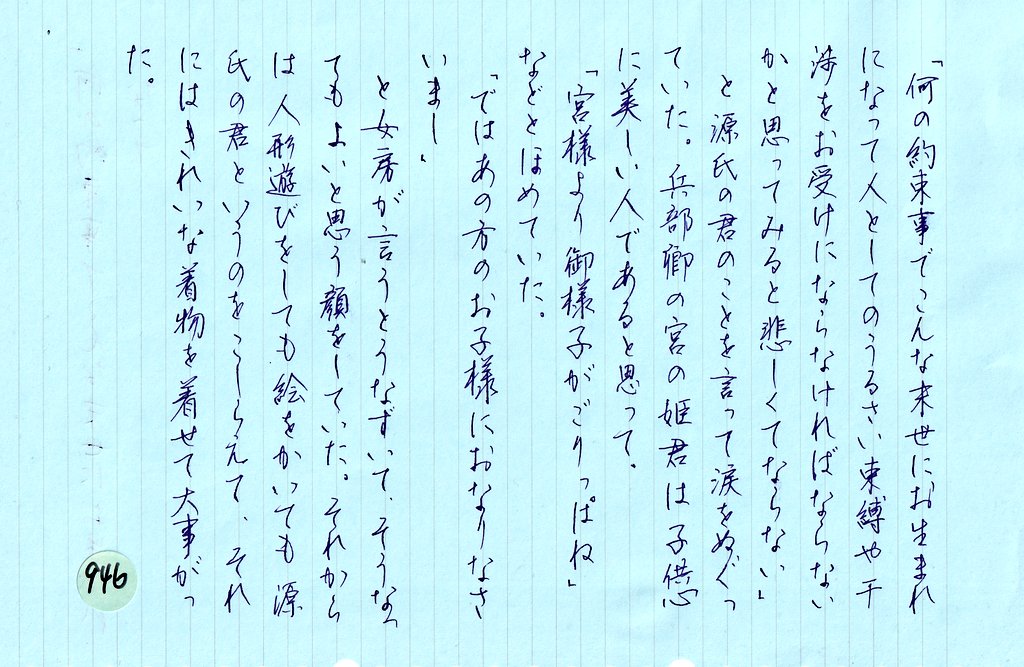 「何の約束事でこんな末世にお生まれ
になって人としてのうるさい束縛や干
渉をお受けにならなければならない
かと思ってみると悲しくてならない」
と源氏の君のことを言って涙をぬぐっ
ていた。兵部卿の宮の姫君は子供心
に美しい人であると思って、
「宮様より御様子がごりっぱね」
などとほめていた。
「ではあの方のお子様におなりなさ
いまし」
と女房が言うとうなずいて、そうなっ
てもよいと思う顔をしていた。それから
は人形遊びをしても絵をかいても源
氏の君というのをこしらえて、それ
にはきれいな着物を着せて大事がっ
た。
946